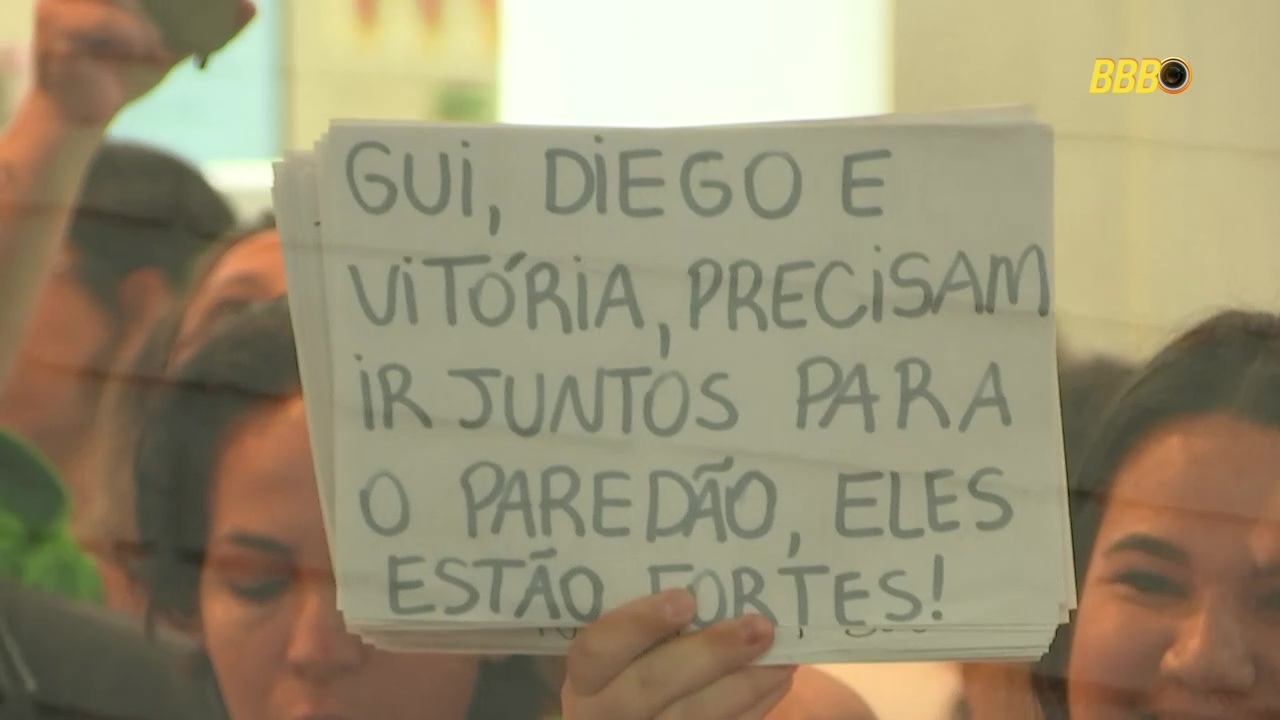 BBB
GUI, DIEGO E
VITÓRIA, PRECISAM
IR JUNTOS PARA
O PAREDÃO, ELES
ESTÃO FORTES!